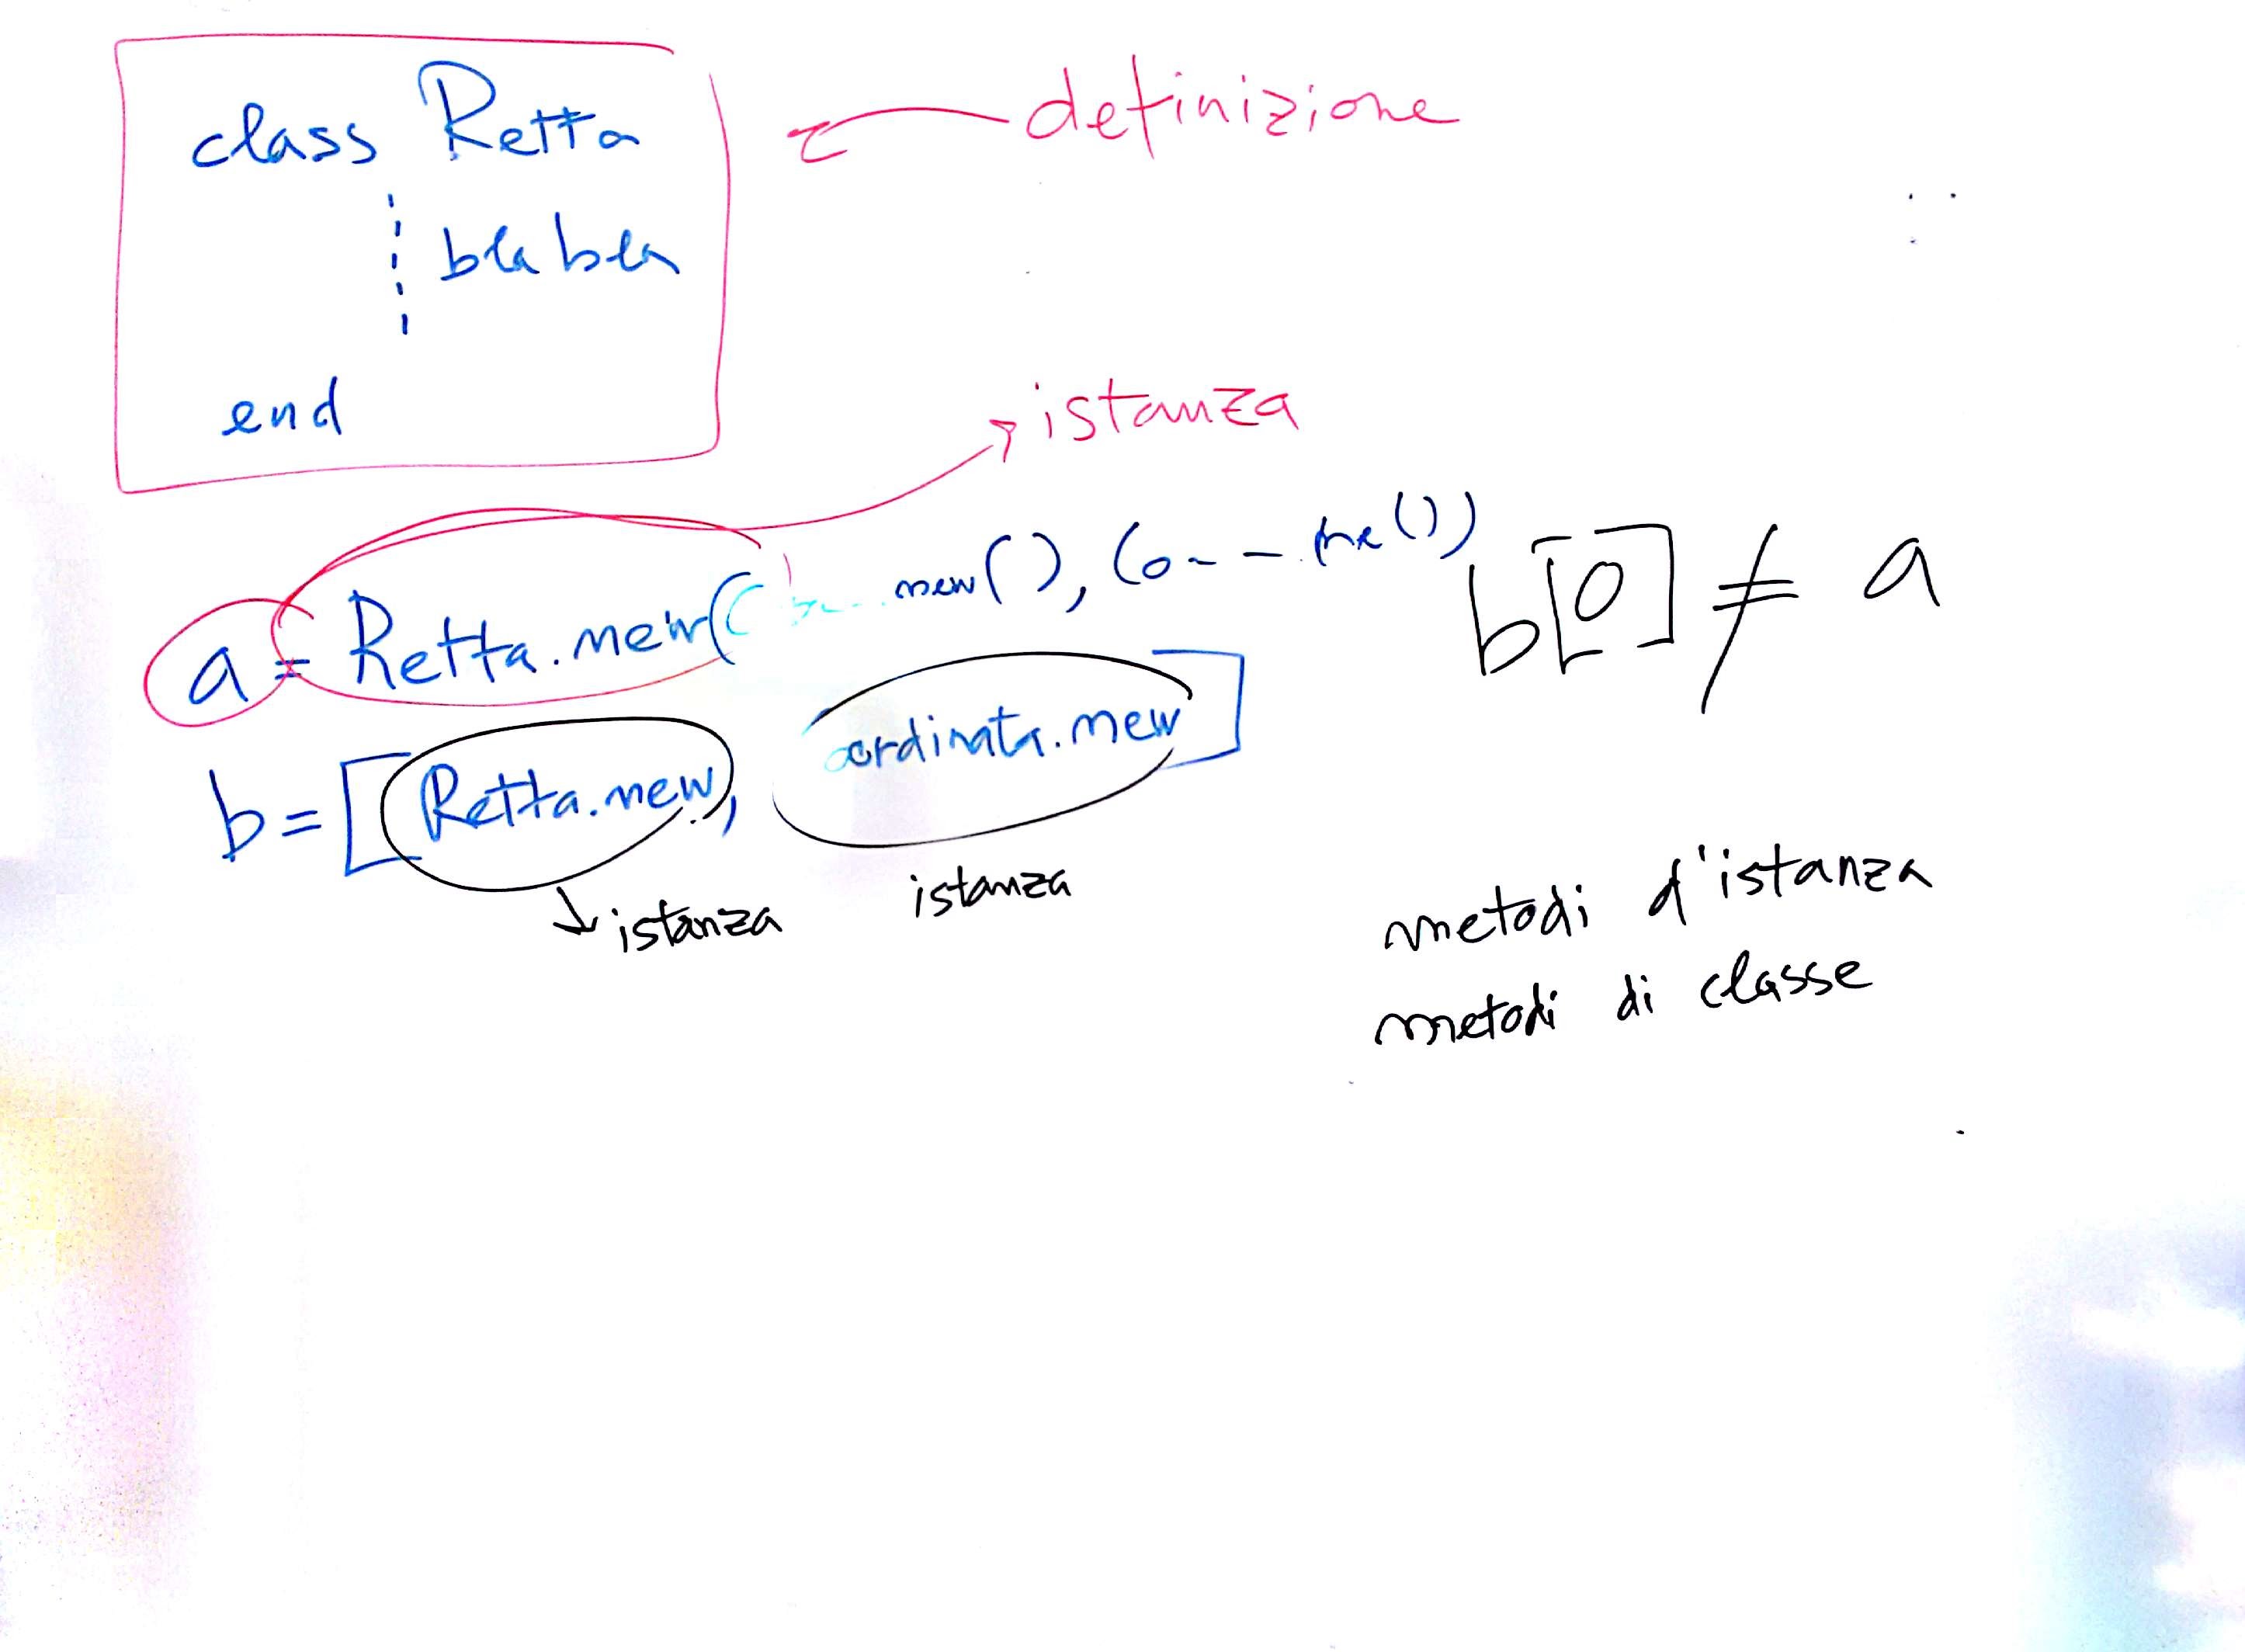 class Retta
definizione
bla bla
end
istanza
a = Retta.new( new(), Co-- ne())
b[0] ≠ a
b = [Retta.new, oordinata.new]
istanza
istanza
metodi d'istanza
metodi di classe